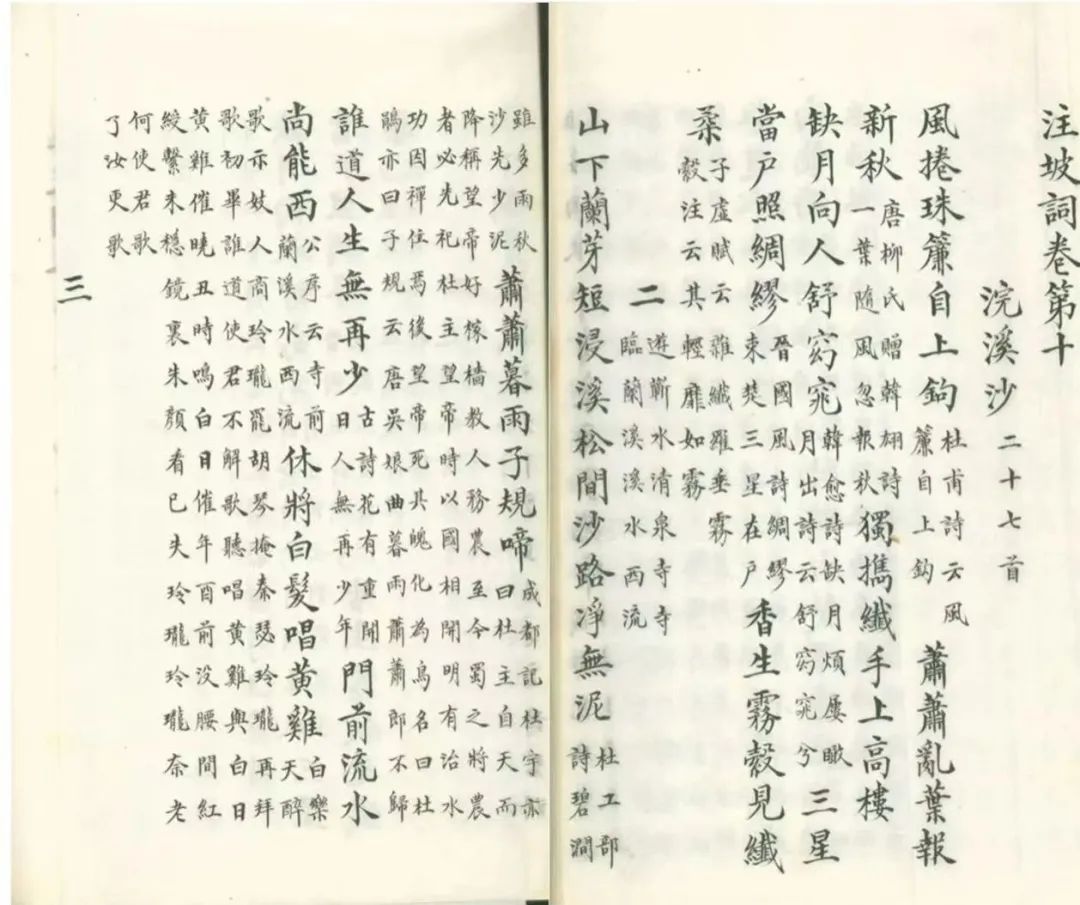 注坡詞卷第十
浣溪沙 二十七首
風捲珠簾自上鉤杜甫詩云風簾自上鈎蕭蕭亂葉報
新秋唐柳氏贈韓翃詩一葉隨風忽報秋獨攜纖手上高樓
缺月向人舒窈窕韓愈詩缺月煩屢瞰月出詩云舒窈窕兮三星
當戶照綢繆晉國風詩綢繆束楚三星在戶香生霧縠見纖
柔子虛賦云雜纖羅垂霧縠注云其輕靡如霧
二 遊蘄水清泉寺寺臨蘭溪溪水西流
山下蘭芽短浸溪松間沙路凈無泥杜工部詩碧澗
雖多雨秋沙先少泥蕭蕭暮雨子規啼成都記杜宇亦曰杜主自天而
降稱望帝好稼穡教人務農至今蜀之將農
者必先祀杜主望帝時以國相開明有治水
功因禪位焉後望帝死其魄化為鳥名曰杜
鵑亦曰子規云唐吳娘曲暮雨蕭蕭郎不歸
誰道人生無再少古詩花有重開日人無再少年門前流水
尚能西公序云寺前蘭溪水西流休將白髮唱黃雞白樂天醉
歌亦妓人商玲瓏罷胡琴掩秦瑟玲瓏再拜
歌初畢誰道使君不解歌聽唱黃雞與白日
黃雞催曉丑時鳴白日催年酉前没腰間紅
綬繫未穩鏡裏朱顏看已失玲瓏玲瓏奈老
何使君歌
了汝更歌
三